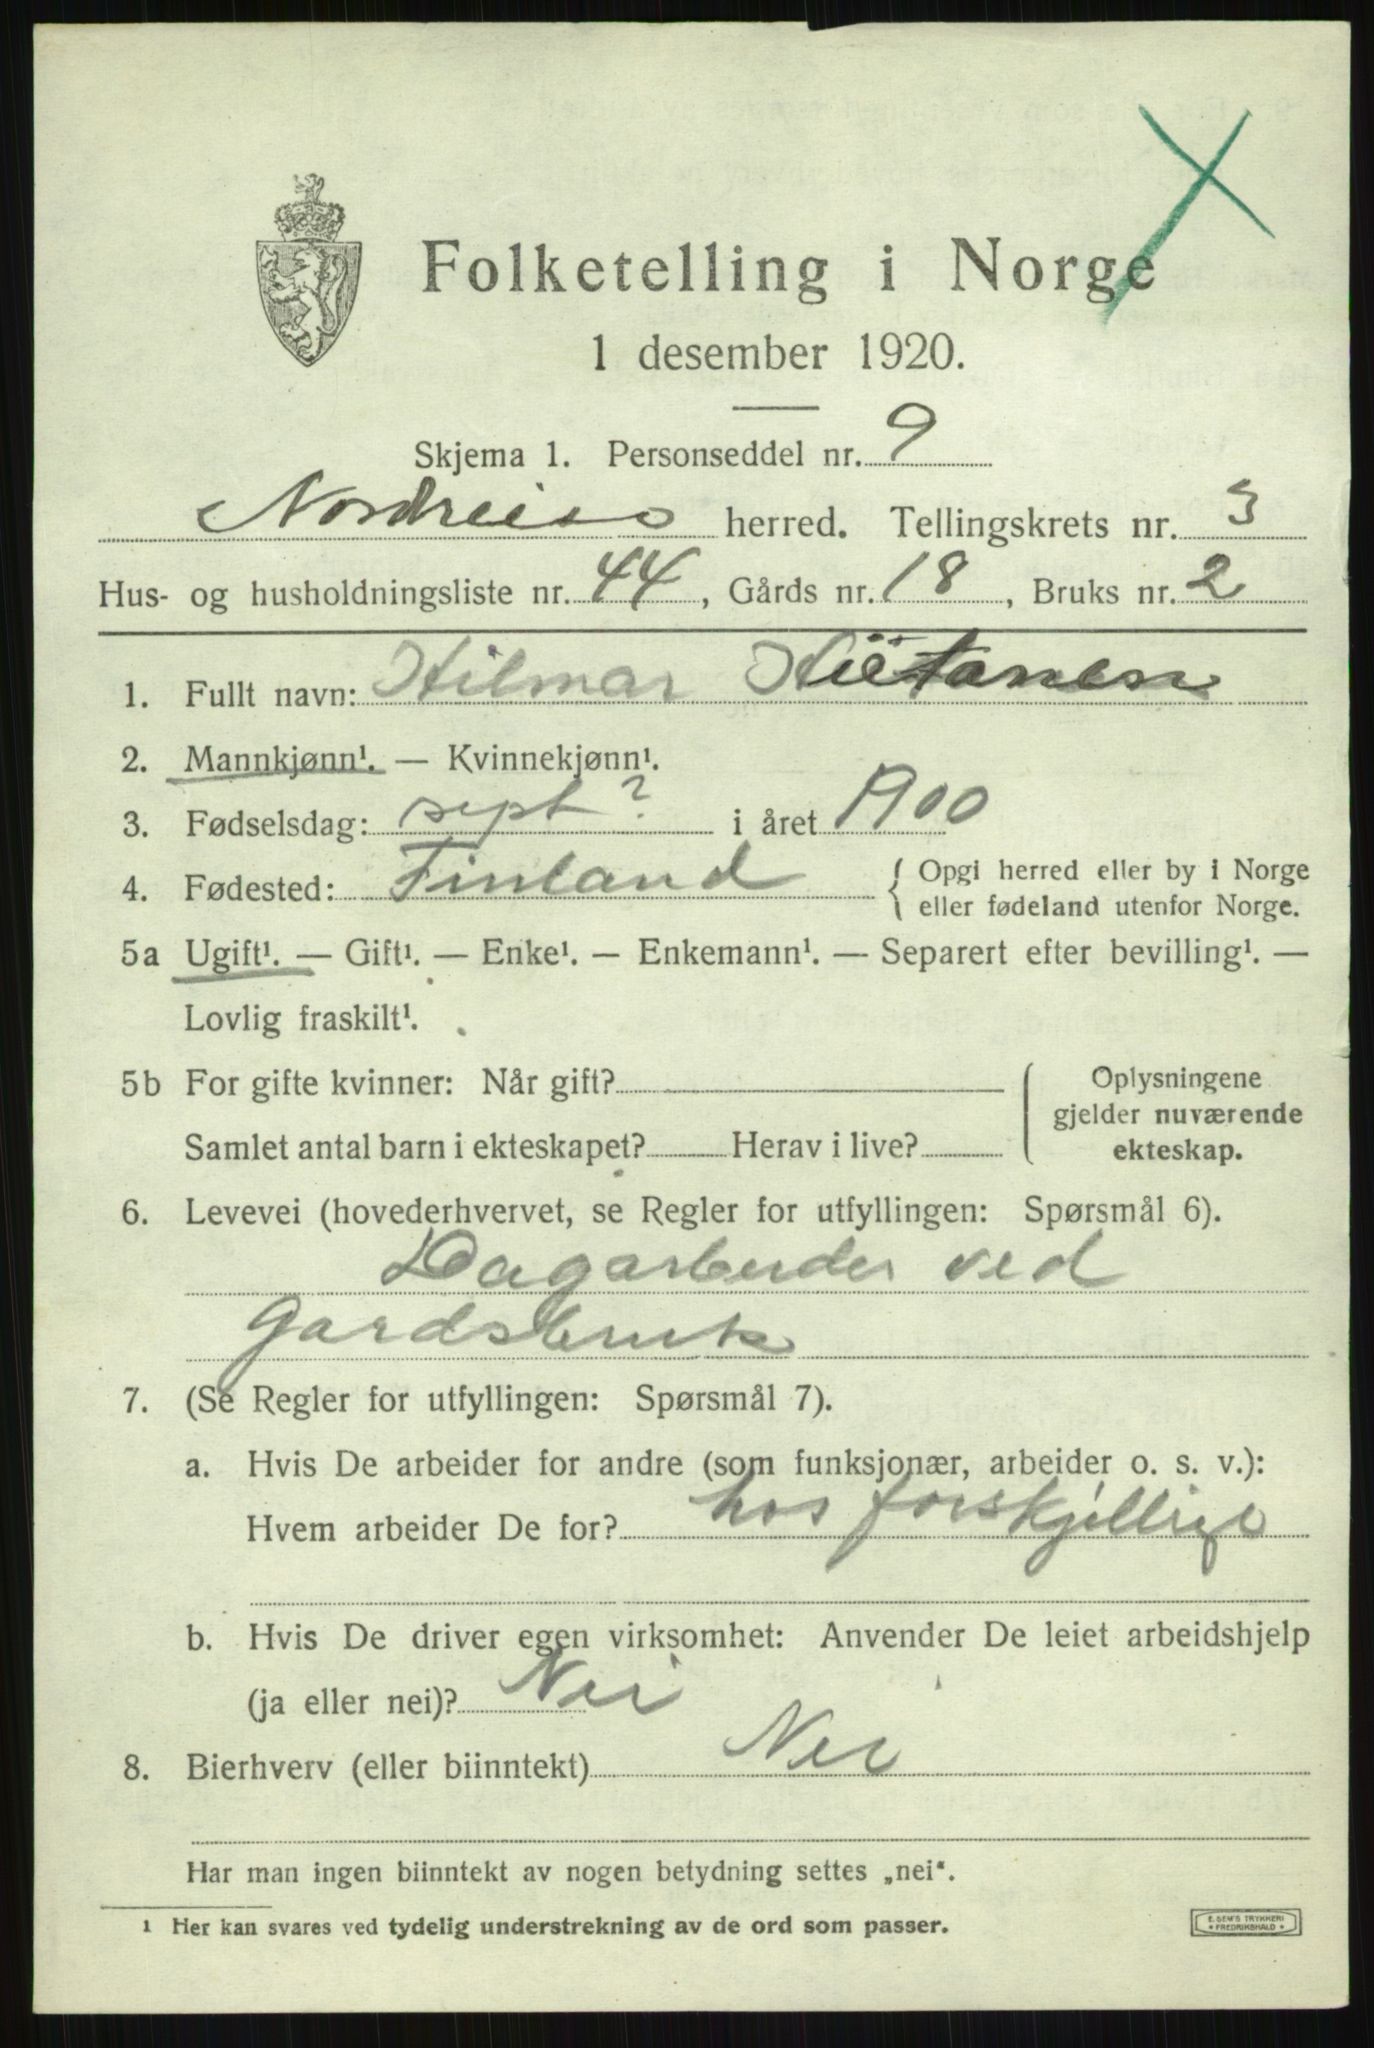 Folketelling i Norge
1 desember 1920.
Skjema 1. Personseddel nr. 9
Nordreisa herred. Tellingskrets nr. 3
Hus- og husholdningsliste nr. 44, Gårds nr. 18, Bruks nr. 2
1. Fullt navn: Hilmar Hietanen
2. Mannkjønn¹. — Kvinnekjønn¹.
3. Fødselsdag: sept? i året 1900
4. Fødested: Finland { Opgi herred eller by i Norge
eller fødeland utenfor Norge.
5a Ugift¹. — Gift¹. — Enke¹. — Enkemann¹. — Separert efter bevilling¹. —
Lovlig fraskilt¹.
5b For gifte kvinner: Når gift?
Samlet antal barn i ekteskapet? Herav i live?
Oplysningene
gjelder nuværende
ekteskap.
6. Levevei (hovederhvervet, se Regler for utfyllingen: Spørsmål 6).
Dagarbeider ved
Gardsbruk
7. (Se Regler for utfyllingen: Spørsmål 7).
a. Hvis De arbeider for andre (som funksjonær, arbeider o. s. v.):
Hvem arbeider De for? hos forskjellige
b. Hvis De driver egen virksomhet: Anvender De leiet arbeidshjelp
(ja eller nei)? Nei
8. Bierhverv (eller biinntekt) Nei
Har man ingen biinntekt av nogen betydning settes „nei“.
¹ Her kan svares ved tydelig understrekning av de ord som passer.
E. SEM'S TRYKKERI
* FREDRIKSHALD *